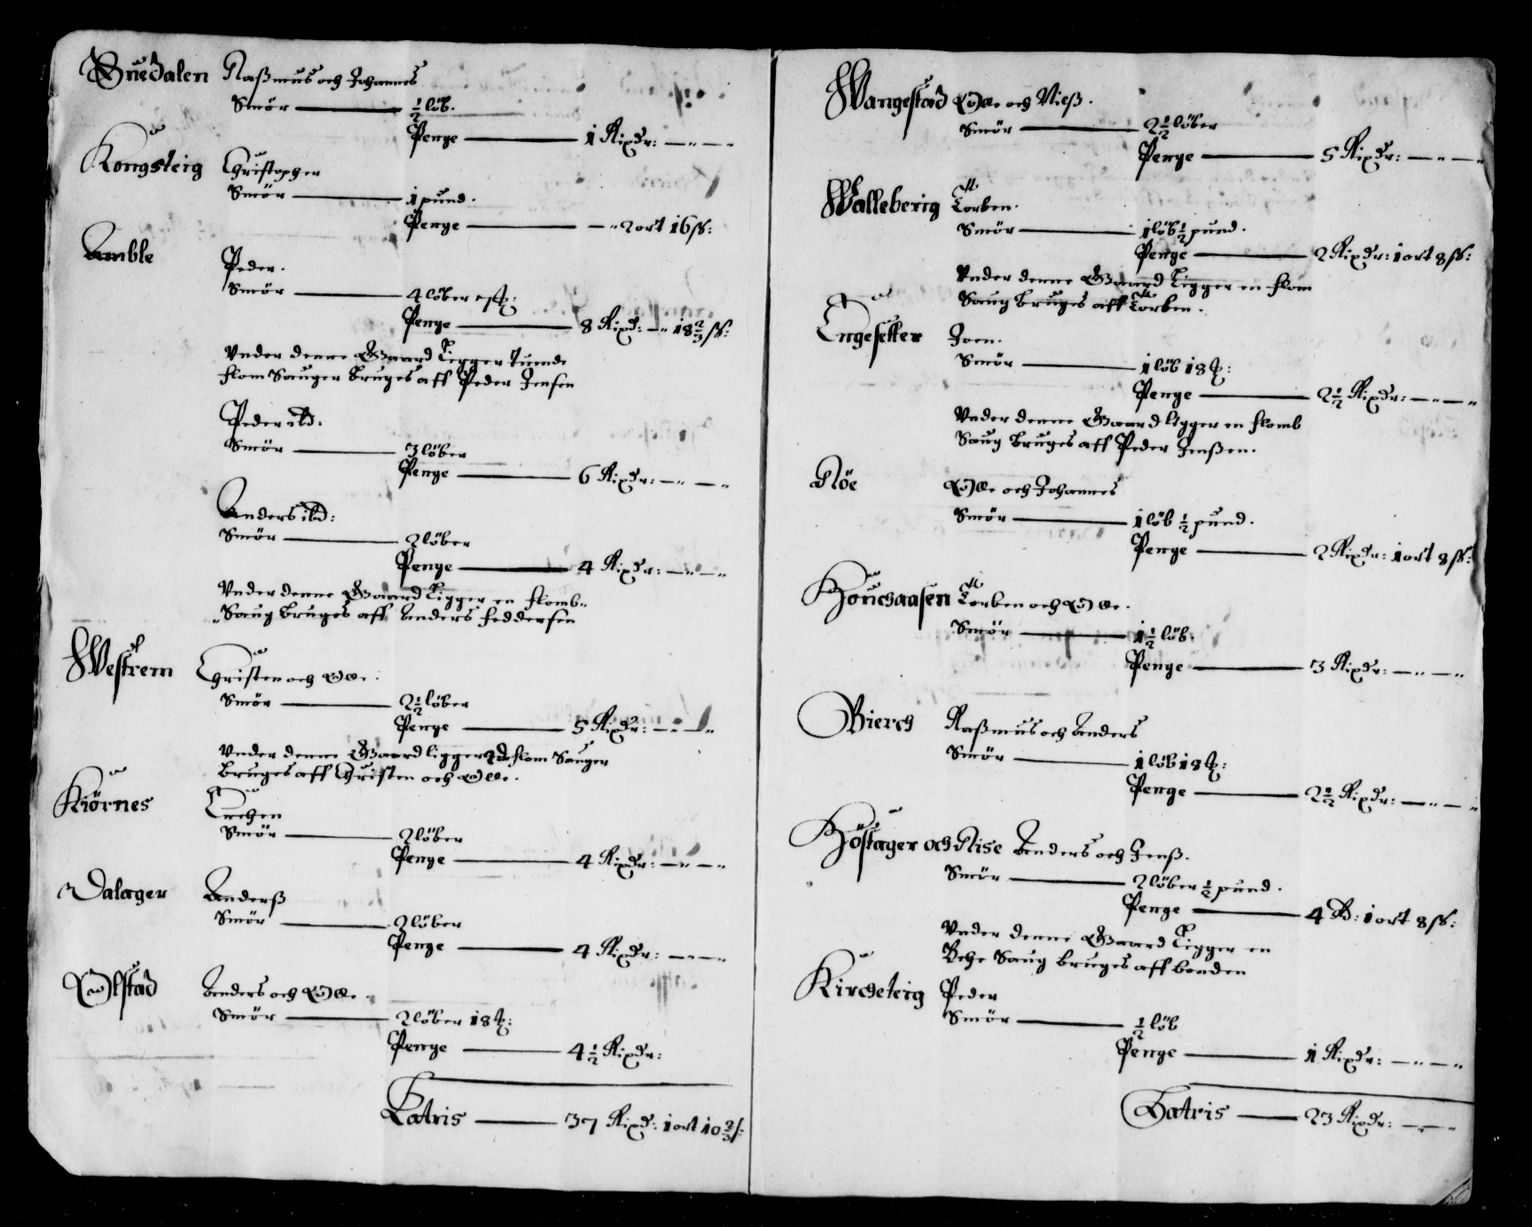 Suedalen Raßmus och Johannes
Smör ½ löb.
Penge 1 Rixdr: — " — "
Kongsteig Christopher
Smör 1 pund.
Penge — " 2 ort 16 ß:
Amble
Peder.
Smör 4 löber
Penge 8 Rixd: — " 18⅔ ß:
Vnder denne Gaard Ligger tuende
flom Sauger bruges aff Peder Jensen
Peder ibd.
Smör 3 löber
Penge 6 Rixdr: — " — "
Anders ibd:
Smör 2 löber
Penge 4 Rixdr: — " — "
Vnder denne Gaard Ligger en flomb"
"Saug bruges aff Anders Feddersen
Westrem Christen och Olle.
Smör 2½ löber
Penge 5 Rixdr: — " — "
Vnder denne Gaard ligger 2 flom Sauger
bruges aff Christen och Olle.
Kiörnes
Smör 2 löber
Penge 4 Rixdr: — " — "
Dalager Anderß
Smör 2 löber
Penge 4 Rixdr: — " — "
Olstad Anders och Olle.
Smör 2 löber 18 ℔:
Penge 4½ Rixdr:
Latris 37 Rixd: 1 ort 10⅔ ß:
Wangestad Olle och Nielß.
Smör 2½ löber
Penge 5 Rixdr: — " — "
Walleberig Torben.
Smör 1 löb ½ pund.
Penge 2 Rixdr: 1 ort 8 ß:
Vnder denne Gaard Ligger en flom
Saug bruges aff Torben.
Engesetter Joen.
Smör 1 löb 18 ℔:
Penge 2½ Rixdr: — " — "
Vnder denne Gaard ligger en flomb
Saug bruges aff Peder Jenßen.
Nöe Olle och Johannes
Smör 1 löb ½ pund.
Penge 2 Rixdr: 1 ort 8 ß:
Torben och Olle.
Smör 1½ löb.
Penge 3 Rixdr: — " — "
Bierch Raßmus och Anders
Smör 1 löb 18 ℔:
Penge 2½ Rixdr: — " — "
Höstager och Rise Anders och Jenß.
Smör 2 löber ½ pund.
Penge 4 R: 1 ort 8 ß:
Vnder denne Gaard Ligger en
Saug bruges aff bonden
Kircheteig Peder
Smör ½ löb
Penge 1 Rixdr: — " — "
Latris 23 Rixdr: — " — "